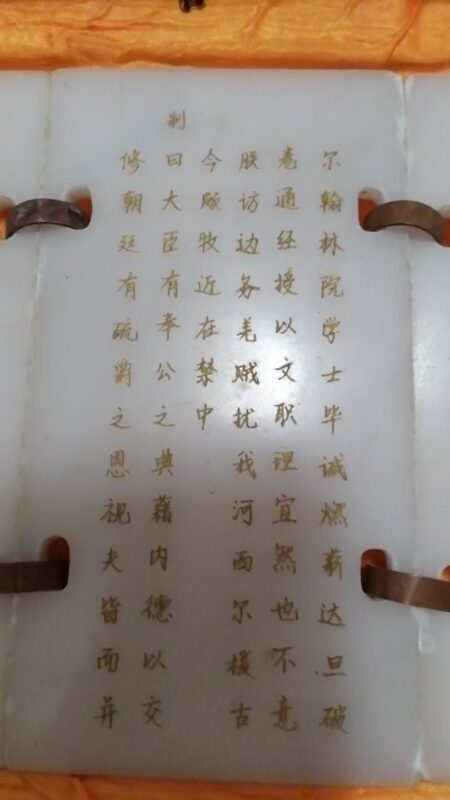 尔翰林院学士毕诚燃薪达旦破
卷通经授以文职理宜然也不意
朕访边务羌贼扰我河西尔援古
今颇牧近在禁中
制
曰大臣有奉公之典藉内德以交
修朝廷有疏爵之恩视夫皆而并